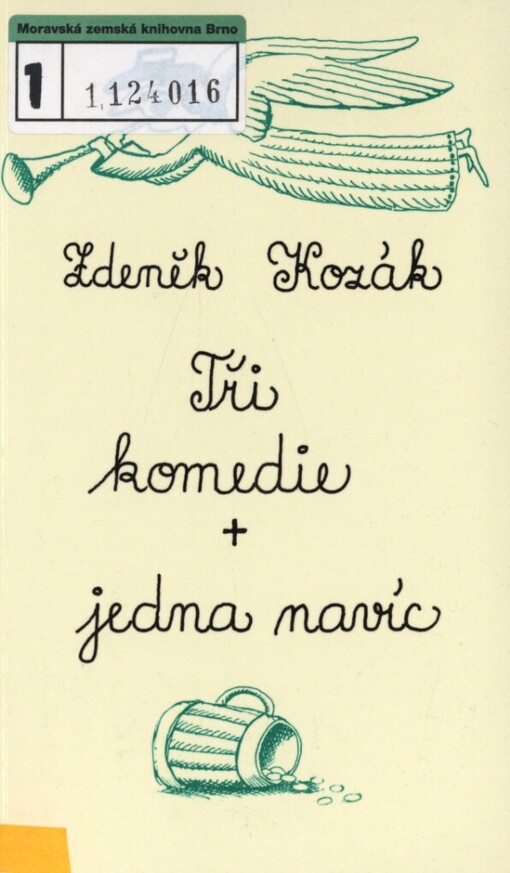 Moravská zemská knihovna Brno
1 1,124016
Zdeněk Kozák
Tři
komedie
+
jedna navíc